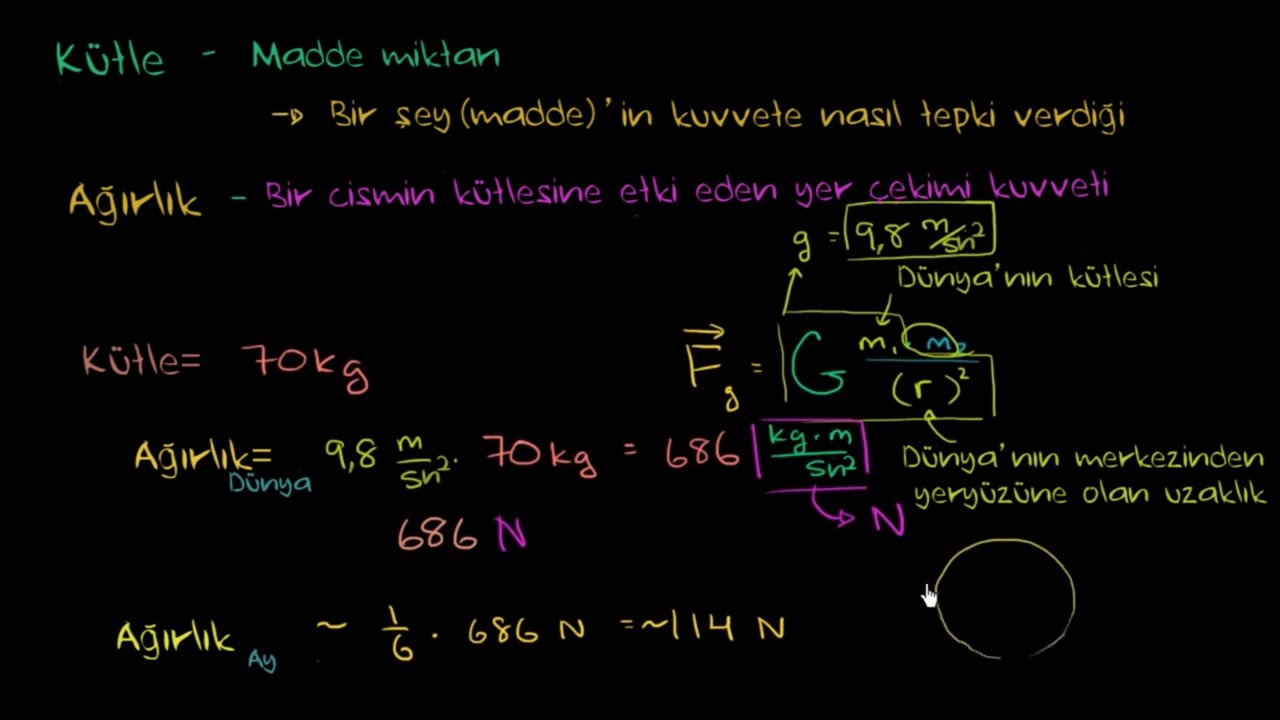 Kütle - Madde miktarı
→ Bir şey (madde)'in kuvvete nasıl tepki verdiği
Ağırlık - Bir cismin kütlesine etki eden yer çekimi kuvveti
g = 9,8 m/sn²
Dünya'nın kütlesi
Kütle= 70kg
F_g = G m₁ · m₂ / (r)²
Ağırlık_Dünya= 9,8 m/sn² · 70kg = 686 kg·m/sn²
→ N
Dünya'nın merkezinden
yeryüzüne olan uzaklık
686 N
Ağırlık_Ay ~ 1/6 · 686 N =~114 N